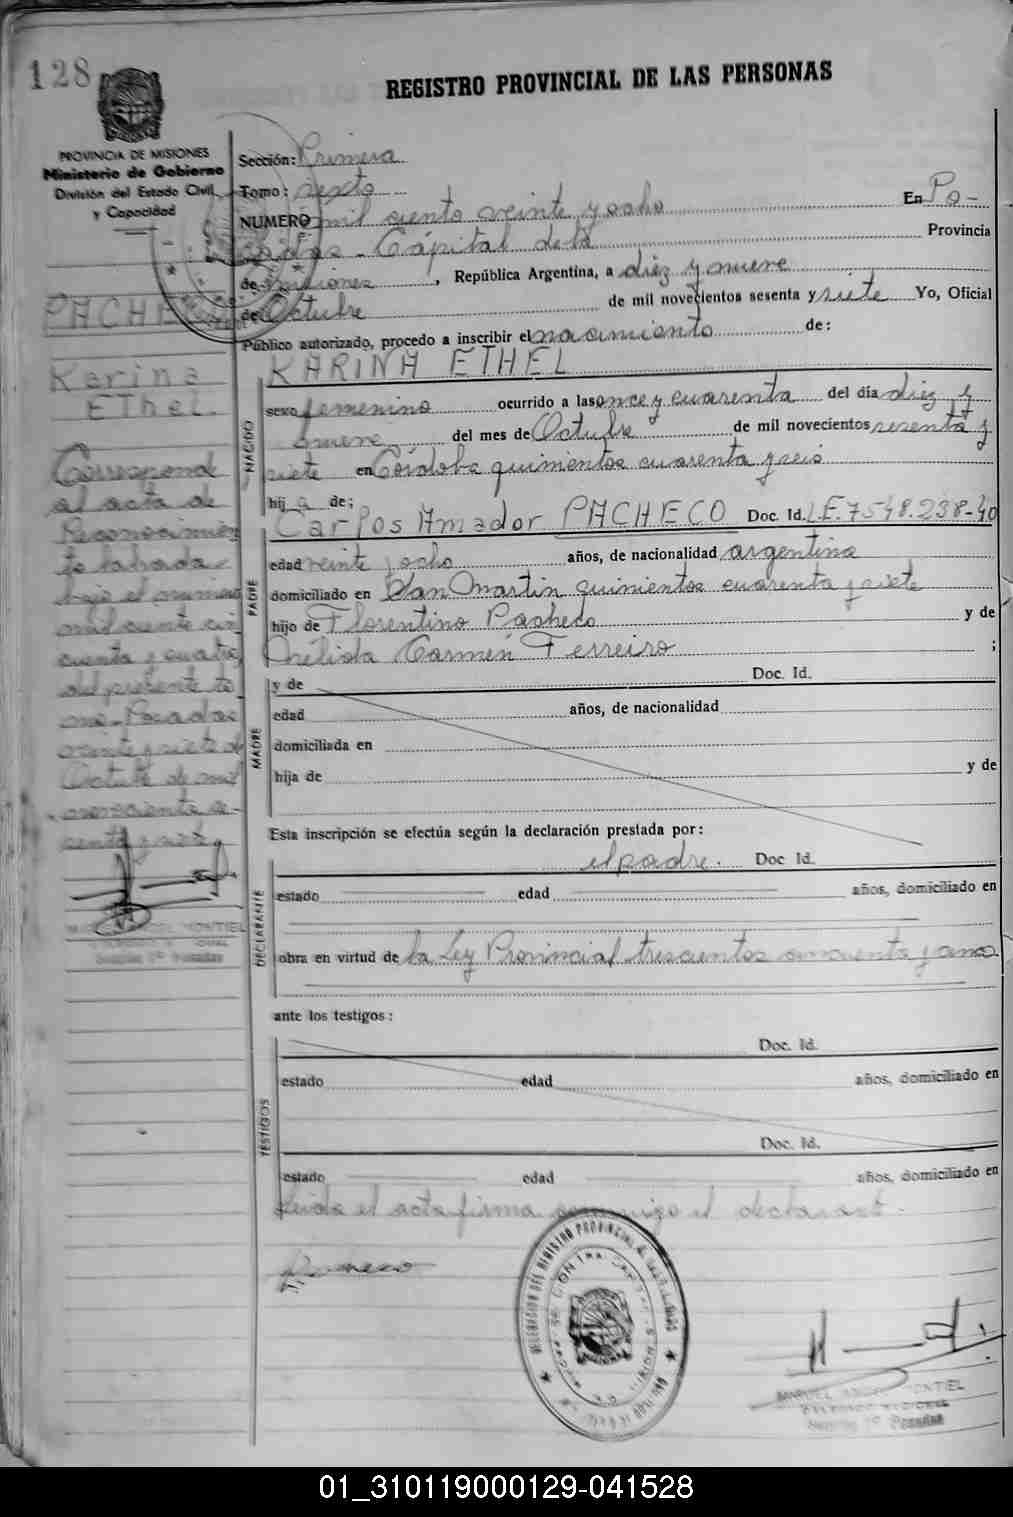 128
REGISTRO PROVINCIAL DE LAS PERSONAS
PROVINCIA DE MISIONES
Ministerio de Gobierno
División del Estado Civil
y Capacidad
Sección: Primera
Tomo: sexto
NUMERO mil ciento veinte y ocho En Po-
sadas - Cápital de la Provincia
de Misiones, República Argentina, a diez y nueve
de Octubre de mil novecientos sesenta y siete Yo, Oficial
Público autorizado, procedo a inscribir el nacimiento de:
KARINA ETHEL
NACIDO
sexo femenino ocurrido a las once y cuarenta del día diez y
nueve del mes de Octubre de mil novecientos sesenta y
siete en Córdoba quinientos cuarenta y seis
hija de:
Carlos Amador PACHECO Doc. Id. L.E. 7548.238-40
PADRE
edad veinte y ocho años, de nacionalidad argentina
domiciliado en San Martin quinientos cuarenta y siete
hijo de Florentino Pacheco y de
Carmen Ferreiro ;
MADRE
y de Doc. Id.
edad años, de nacionalidad
domiciliada en
hija de y de
Esta inscripción se efectúa según la declaración prestada por:
el padre. Doc Id.
DECLARANTE
estado edad años, domiciliado en
obra en virtud de la Ley Provincial trescientos cincuenta y uno.
ante los testigos:
Doc. Id.
TESTIGOS
estado edad años, domiciliado en
Doc. Id.
estado edad años, domiciliado en
Leida el acta firma conmigo el declarante.
Pacheco
MIGUEL ANGEL MONTIEL
Sección 1º Posadas
PACHECO
Karina
Ethel.
Corresponde
al acta de
Reconocimien
to labrada
bajo el número
mil ciento cin
cuenta y cuatro
del presente to
mo - Posadas
veinte y siete de
Octubre de mil
novecientos se-
senta y siete
MIGUEL ANGEL MONTIEL
Sección 1º Posadas
01_310119000129-041528